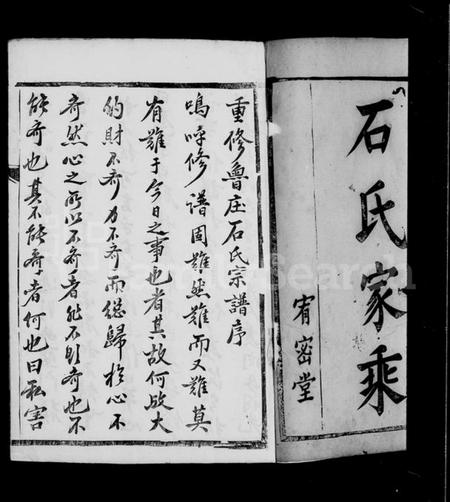 石氏家乘
宥密堂
重修魯庄石氏宗譜序
嗚呼修譜固難然難而又難莫
有難于今日之事也者其故何哉大
約財不齊力不齊而總歸於心不
齊然心之所以不齊者非不欲齊也不
能齊也其不能齊者何也曰私害